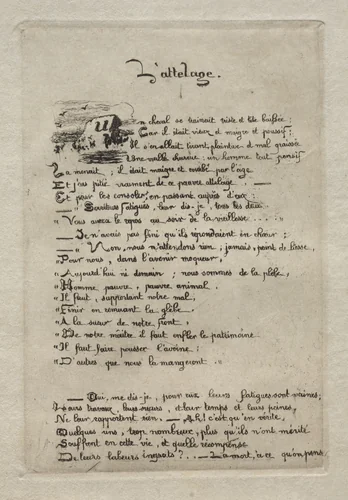 L'attelage.
Un cheval se traînait triste et tête baissée;
Car il était vieux et maigre et poussif;
Il s'en allait tirant, plaintive et mal graissée
Une vieille charrue: un homme tout pensif
La menait; il était maigre et courbé par l'âge
Et j'eus pitié vraiment de ce pauvre attelage. —
Et pour les consoler, en passant auprès d'eux
Serviteurs fatigués, leur dis-je, tous les deux
" Vous aurez le repos au soir de la vieillesse .... "
— Je n'avais pas fini qu'ils répondaient en chœur;
— " Non, nous n'attendons rien, jamais, point de liesse,
" Pour nous, dans l'avenir moqueur,
" Aujourd'hui ni demain; nous sommes de la plèbe,
" Homme pauvre, pauvre animal.
" Il faut, supportant notre mal,
" Finir en remuant la glèbe
" A la sueur de notre front,
" De notre maître il faut enfler le patrimoine
" Il faut faire pousser l'avoine:
" D'autres que nous la mangeront. "
— Oui, me dis-je, pour eux leurs fatigues sont vaines;
Leurs travaux, leurs sueurs, et leur temps et leurs peines,
Ne leur rapportent rien. — Ah! c'est qu'en vérité,
Quelques uns, trop nombreux, plus qu'ils n'ont mérité
Souffrent en cette vie, et quelle récompense
De leurs labeurs ingrats?.. — La mort, à ce qu'on pense.